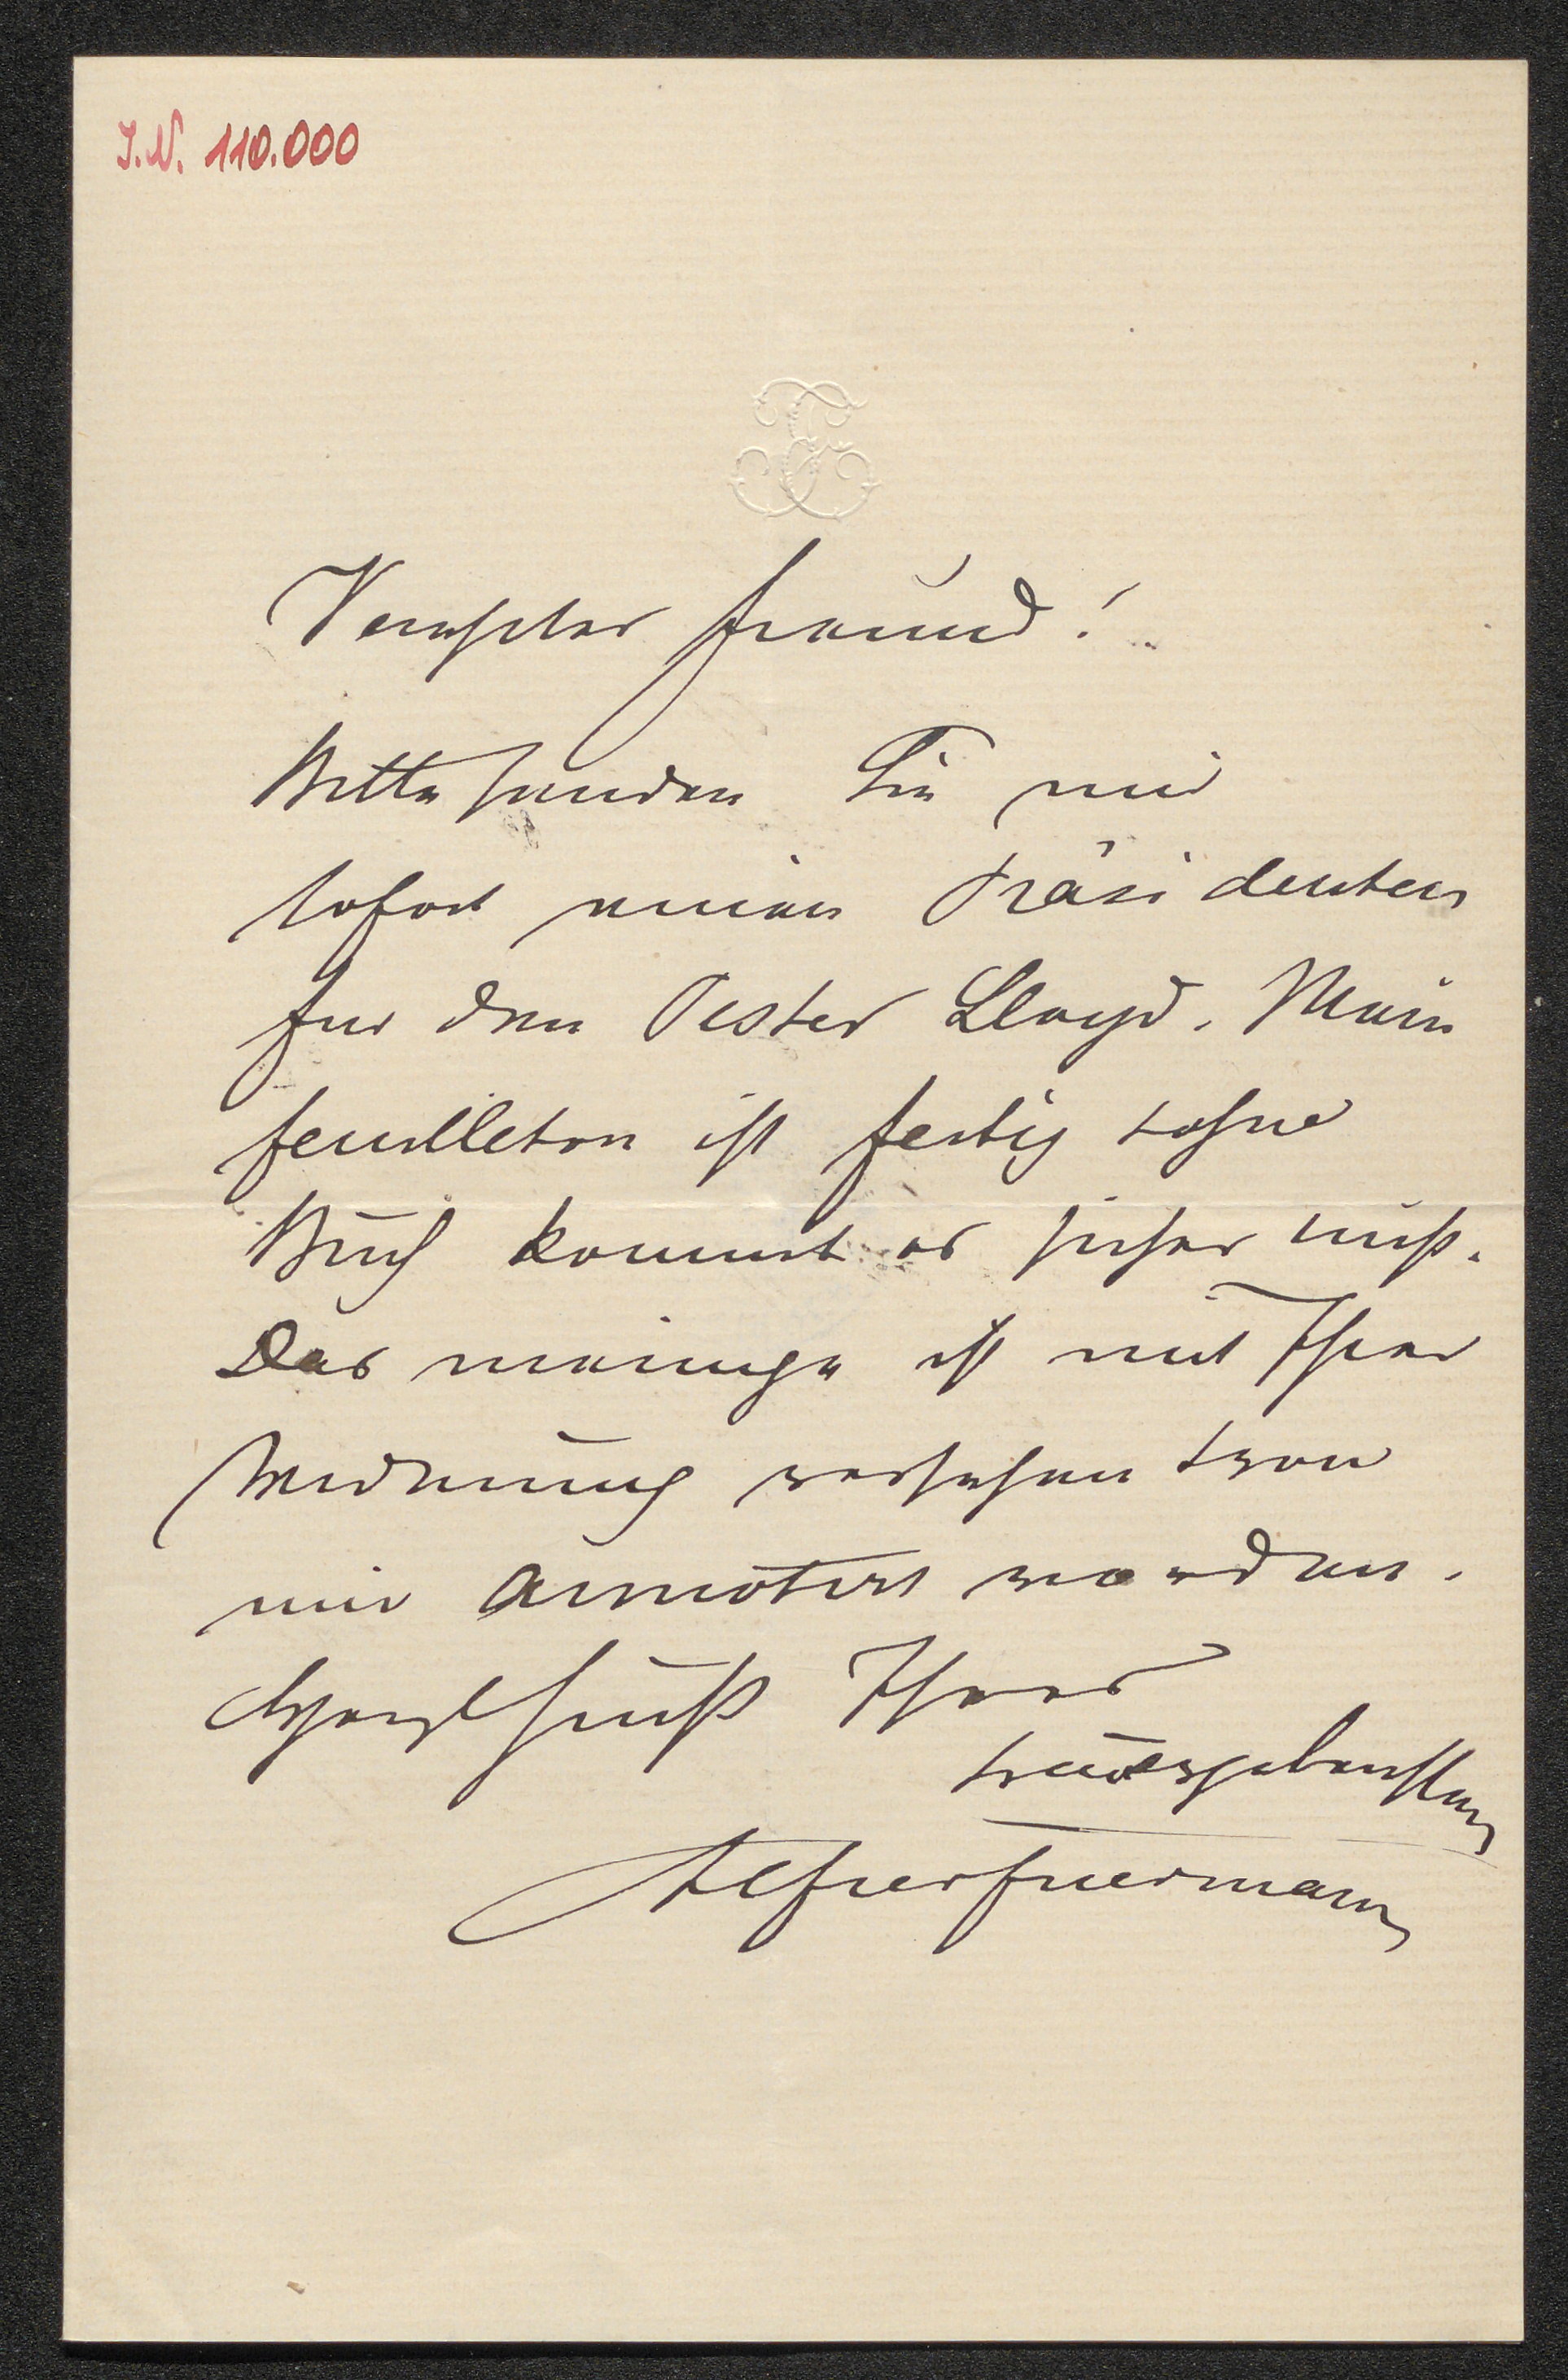 I.N. 110.000
Verehrter Freund!
Bitte senden Sie mir
sofort einen Präsidenten
für den Pester Lloyd. Mein
Feuilleton ist fertig ohne
Buch kommt es sicher nicht.
Das meinige ist mit Ihrer
Widmung versehen von
mir annotirt worden.
Ihres
treuergebensten